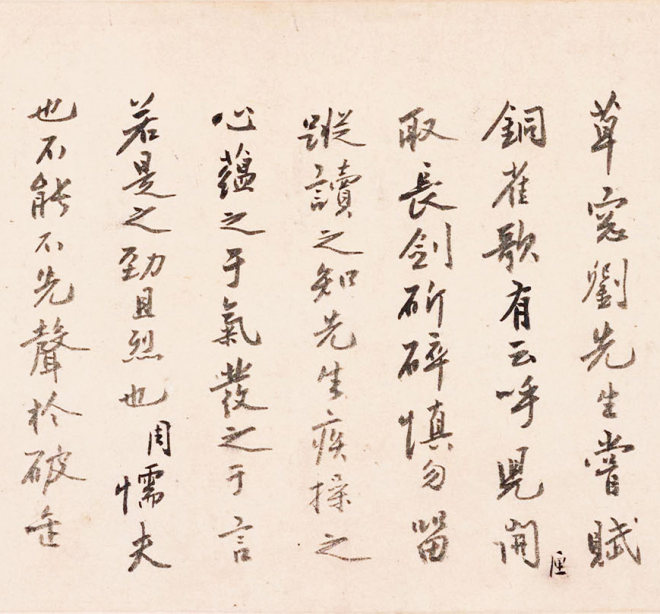 草窓劉先生嘗賦
銅雀歌有云呼児開匣
取長劍斫碎慎勿留
蹤讀之知先生疾操之
心蘊之于氣發之于言
若是之勁且烈也周懦夫
也不能不先聲於破缶